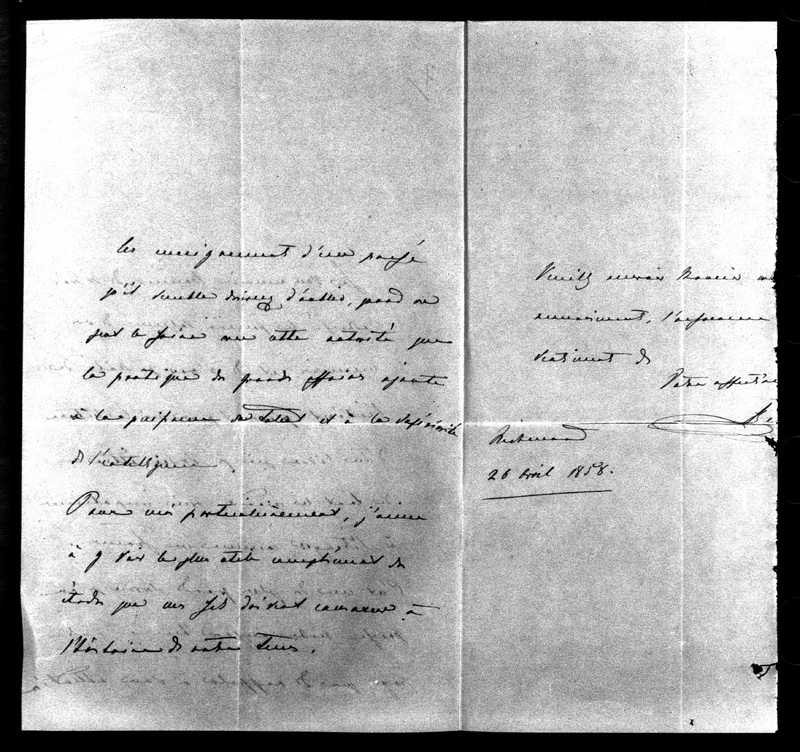 les enseignements d'un passé
qu'il semble d'oublier, quand on
sait le faire avec cette autorité que
la pratique des grandes affaires ajoute
à la puissance du talent et à la supériorité
de l'intelligence
Pour moi particulièrement, j'aime
à y voir le plus utile complément des
études que mes fils doivent consacrer à
l'histoire de notre temps.
Veuillez
l'assurance
sentiments de
Votre affect
Richmond
26 avril 1858.